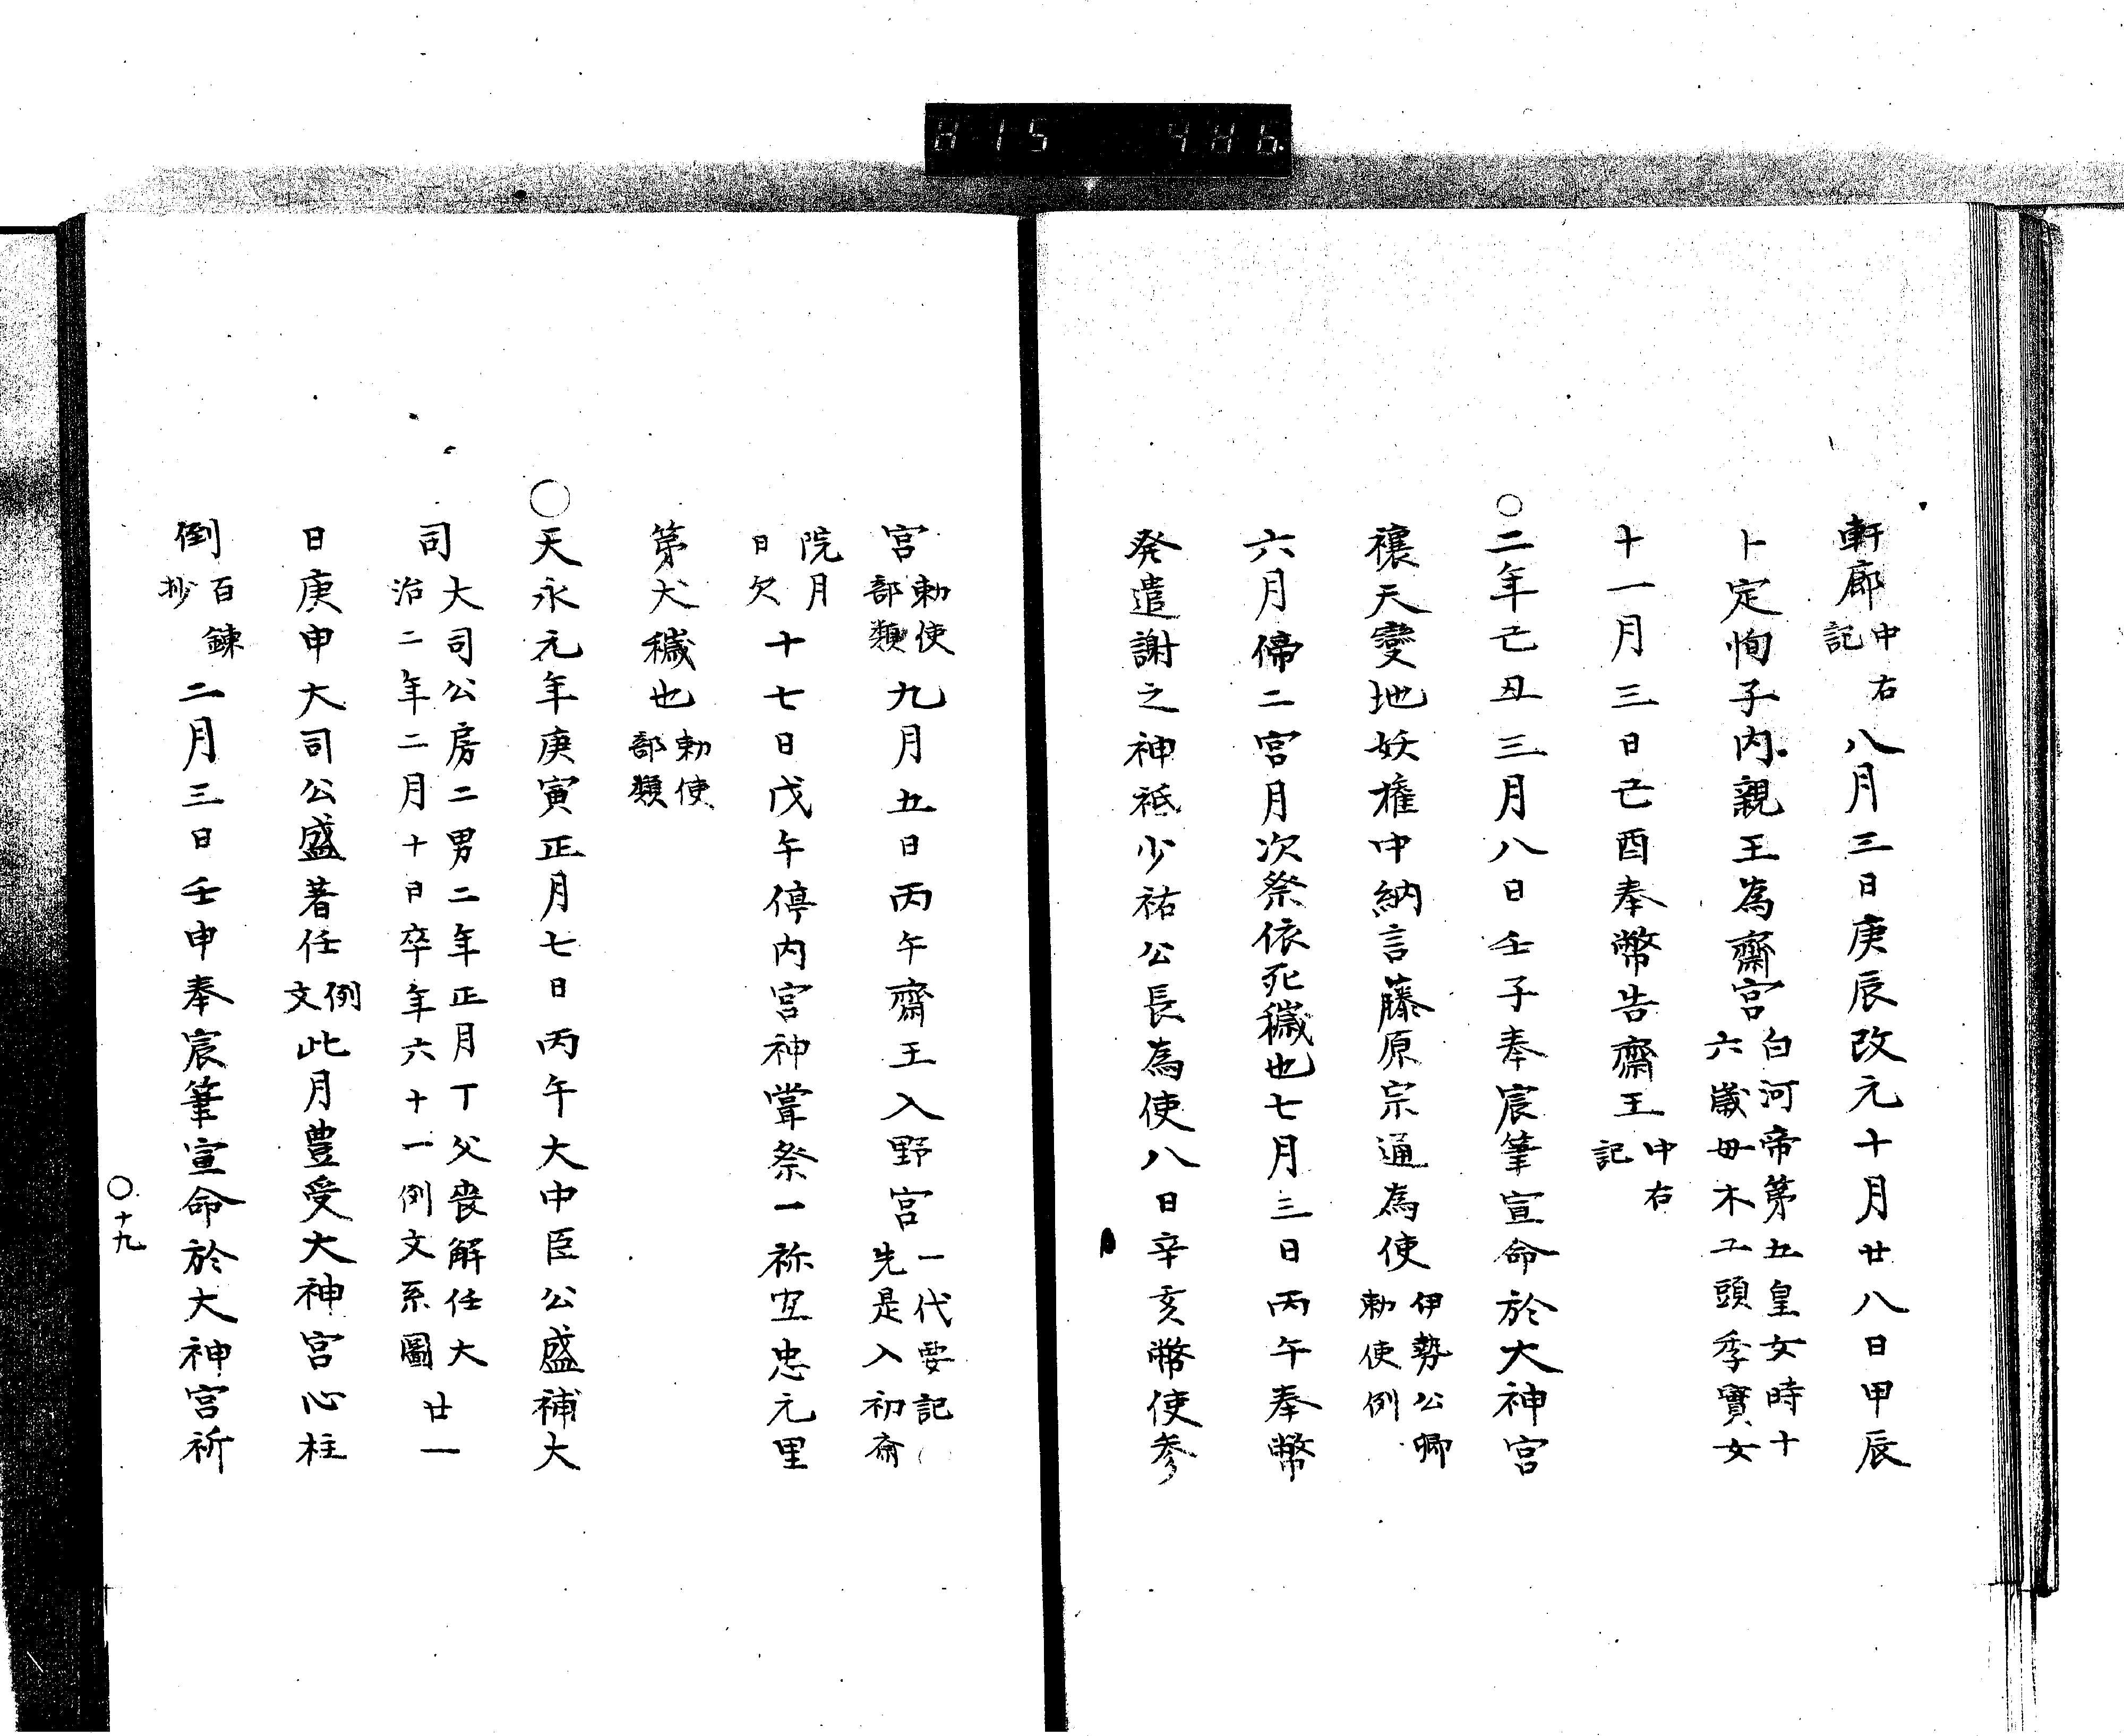 軒廊中右記八月三日庚辰改元十月廿八日甲辰
卜定恂子内親王為齋宮白河帝第五皇女時十六歳母木工頭季實女
十一月三日己酉奉幣告齋王中右記
○二年己丑三月八日壬子奉宸筆宣命於大神宮
禳天變地妖權中納言藤原宗通為使伊勢公卿勅使例
六月停二宮月次祭依死穢也七月三日丙午奉幣
発遣謝之神祇少祐公長為使八日辛亥幣使参
宮勅使部類九月五日丙午齋王入野宮一代要記先是入初斎
院月日欠十七日戊午停内宮神嘗祭一祢宜忠元里
第犬穢也勅使部類
○天永元年庚寅正月七日丙午大中臣公盛補大
司大司公房二男二年正月丁父喪解任大治二年二月十日卒年六十一例文系圖廿一
日庚申大司公盛着任例文此月豊受大神宮心柱
倒百錬抄二月三日壬申奉宸筆宣命於大神宮祈
○十九